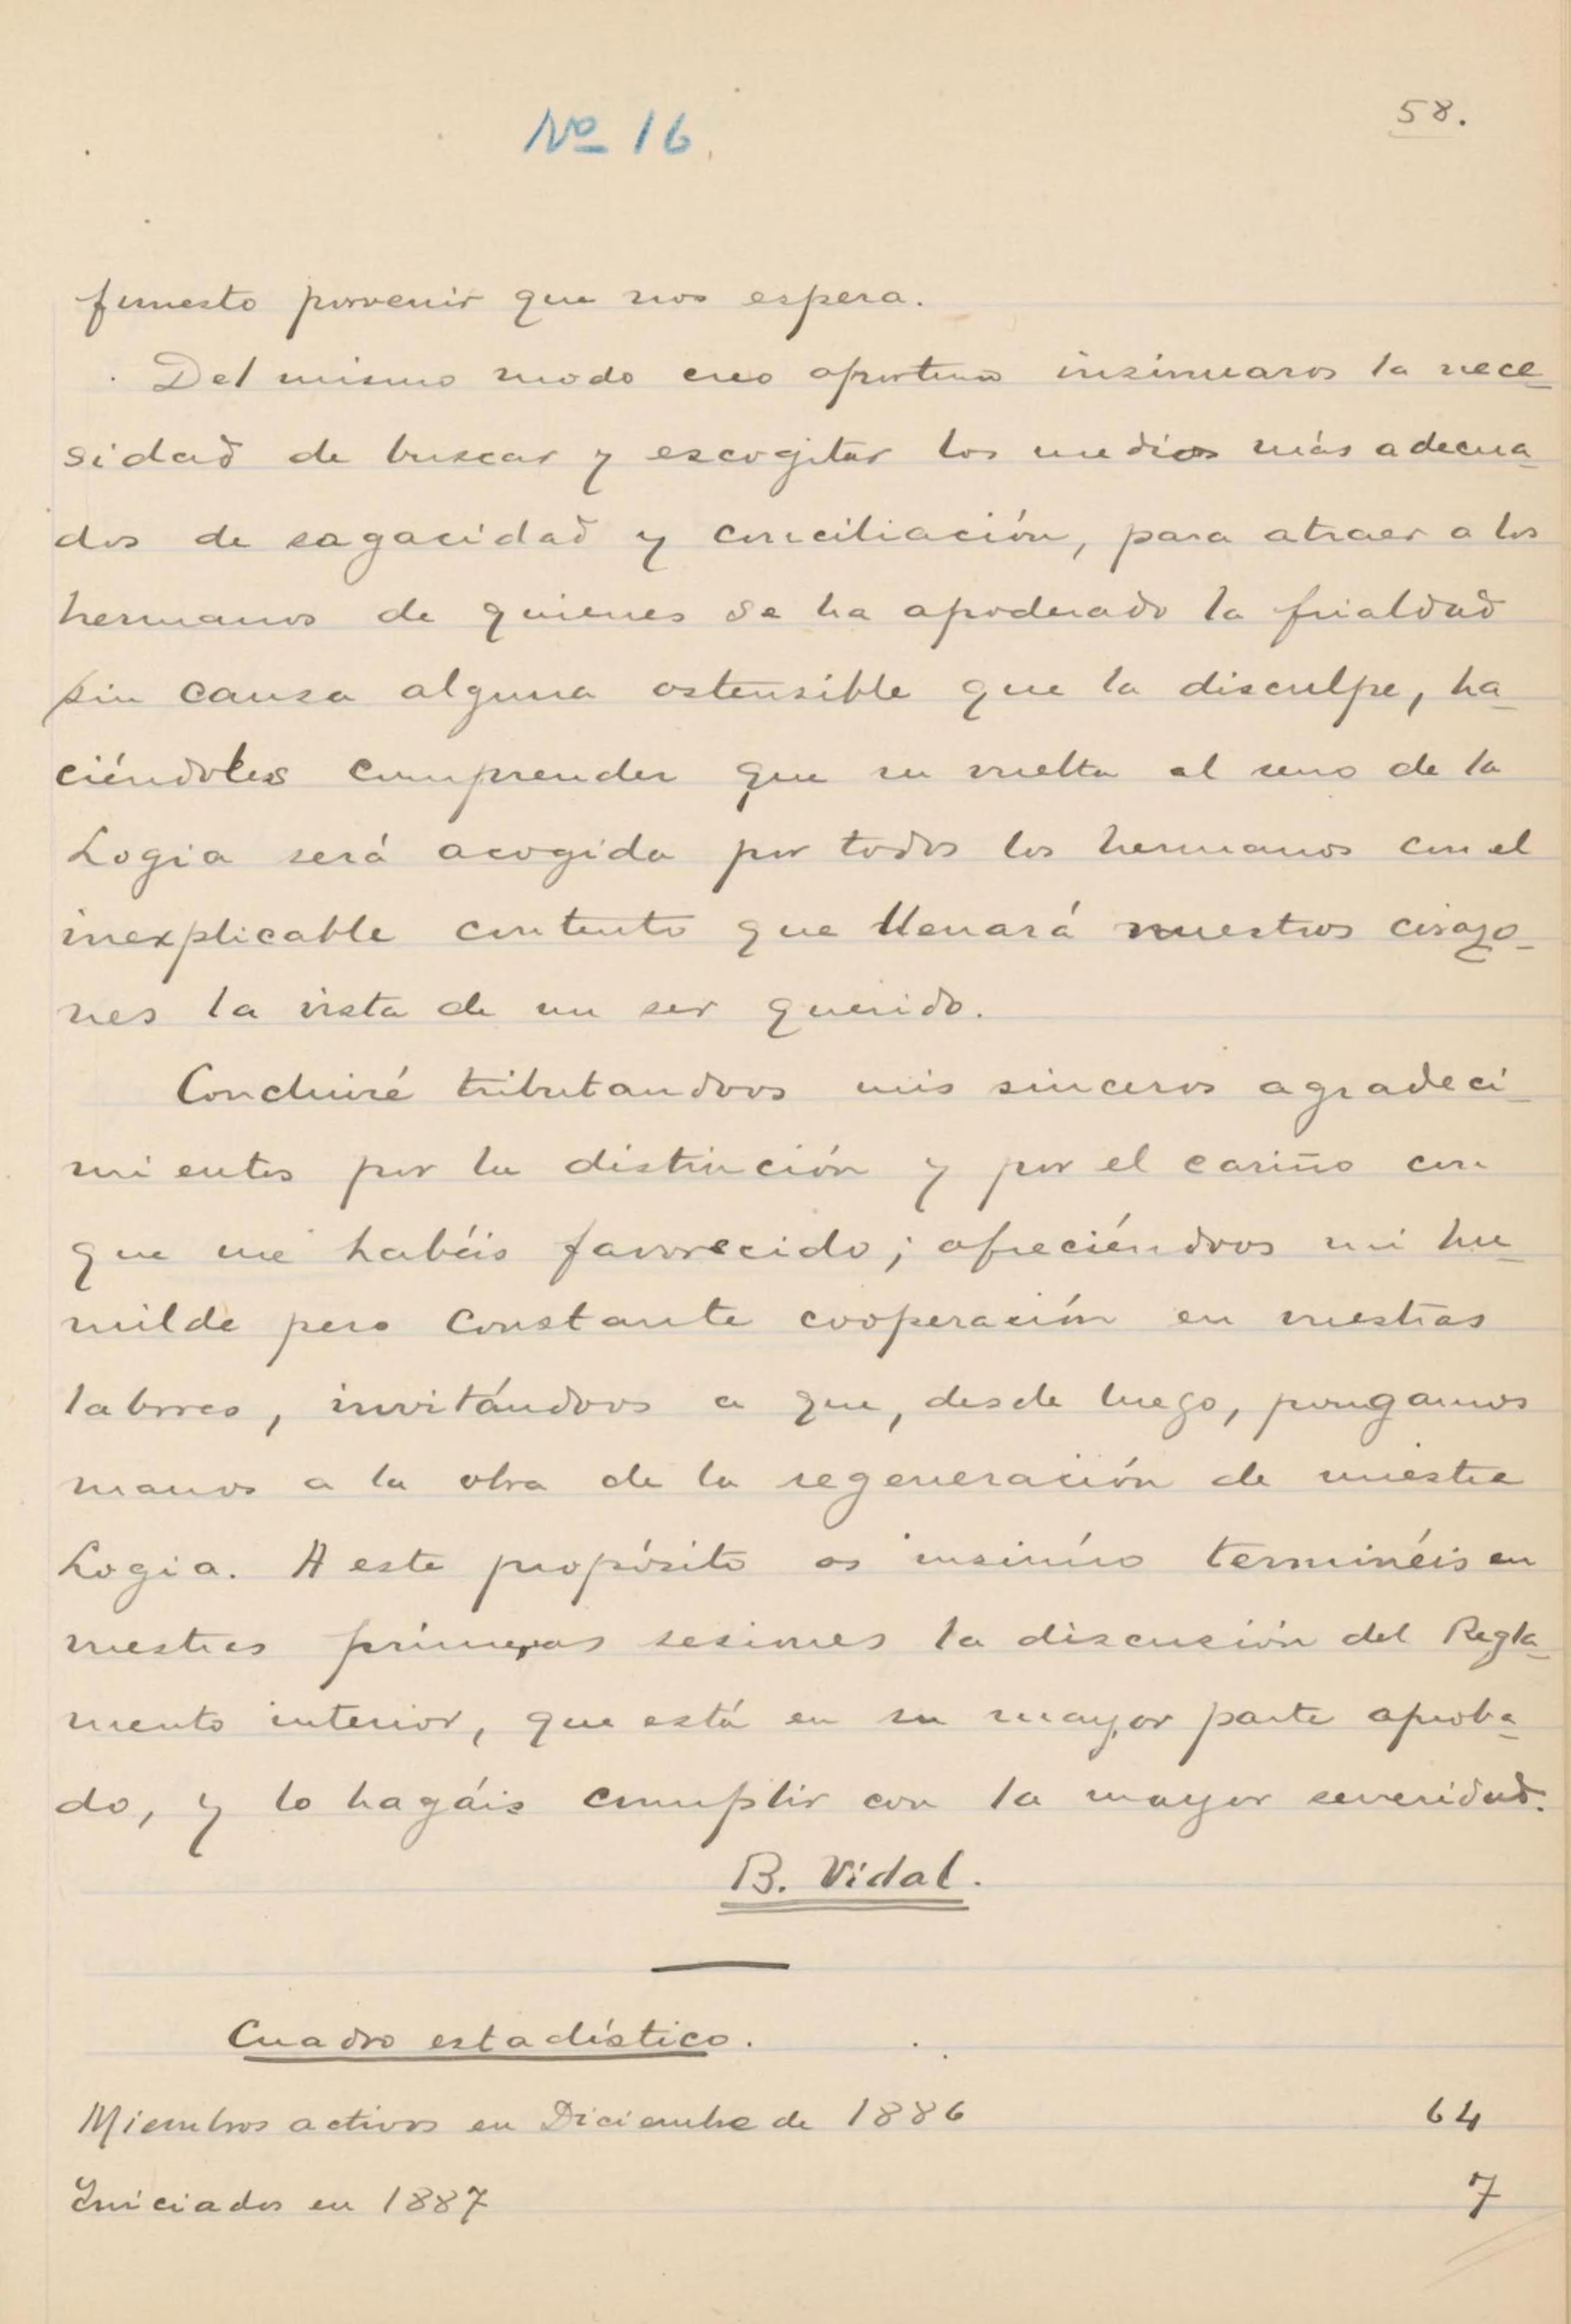 Nº 16.
58.
funesto porvenir que nos espera.
Del mismo modo creo oportuno insinuaros la nece-
sidad de buscar y escogitar los medios más adecua-
dos de sagacidad y conciliación, para atraer a los
hermanos de quienes se ha apoderado la frialdad
sin causa alguna ostensible que la disculpe, ha-
ciéndoles comprender que su vuelta al seno de la
Logia será acogida por todos los hermanos con el
inexplicable contento que llenará nuestros corazo-
nes la vista de un ser querido.
Concluiré tributandoos mis sinceros agradeci-
mientos por la distinción y por el cariño con
que me habéis favorecido; ofreciéndoos mi hu-
milde pero constante cooperación en vuestras
labores, invitándoos a que, desde luego, pongamos
manos a la obra de la regeneración de nuestra
Logia. A este propósito os insinúo terminéis en
vuestras primeras sesiones la discusión del Regla-
mento interior, que está en su mayor parte aproba-
do, y lo hagáis cumplir con la mayor severidad.
B. Vidal.
Cuadro estadístico.
Miembros activos en Diciembre de 1886 64
Iniciados en 1887 7